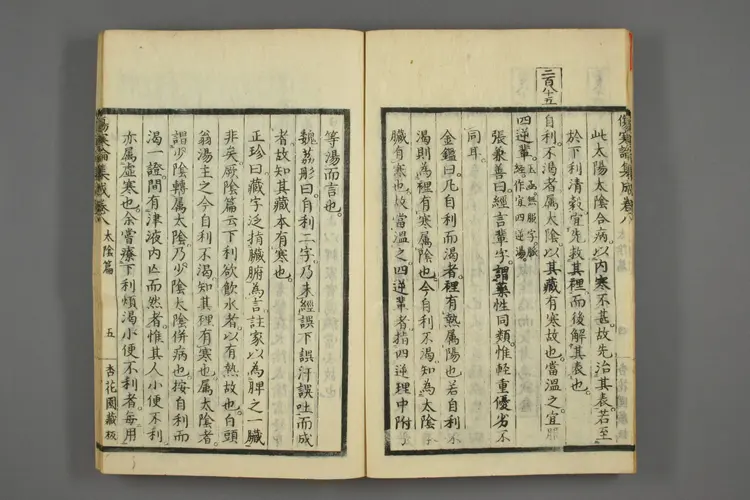 傷寒論集成卷八
此太陽太陰合病以内寒不甚故先治其表若至
於下利清穀宜先救其裡而後解其表也
二百八十五
自利不渴者屬太陰以其藏有寒故也當溫之宜服
四逆輩
玉函無服字脈
經作宜四逆湯
張兼善曰經言輩字謂藥性同類惟輕重優劣不
同耳
金鑑曰凡自利而渴者裡有熱屬陽也若自利不
渴則為裡有寒屬陰也今自利不渴知為太陰
臟有寒也故當溫之四逆輩者指四逆理中附
等湯而言也
魏荔彤曰自利二字乃未經誤下誤汗誤吐而成
者故知其藏本有寒也
正珍曰藏字泛指臟腑為言註家以為脾之一臟
非矣厥陰篇云下利欲飲水者以有熱故也白頭
翁湯主之今自利不渴知其裡有寒也屬太陰者
謂少陰轉屬太陰乃少陰太陰併病也按自利而
渴一證間有津液内亡而然者惟其人小便不利
亦屬虛寒也余嘗療下利煩渴小便不利者每用
傷寒論集成卷八
太陰篇
五
杏花園藏板